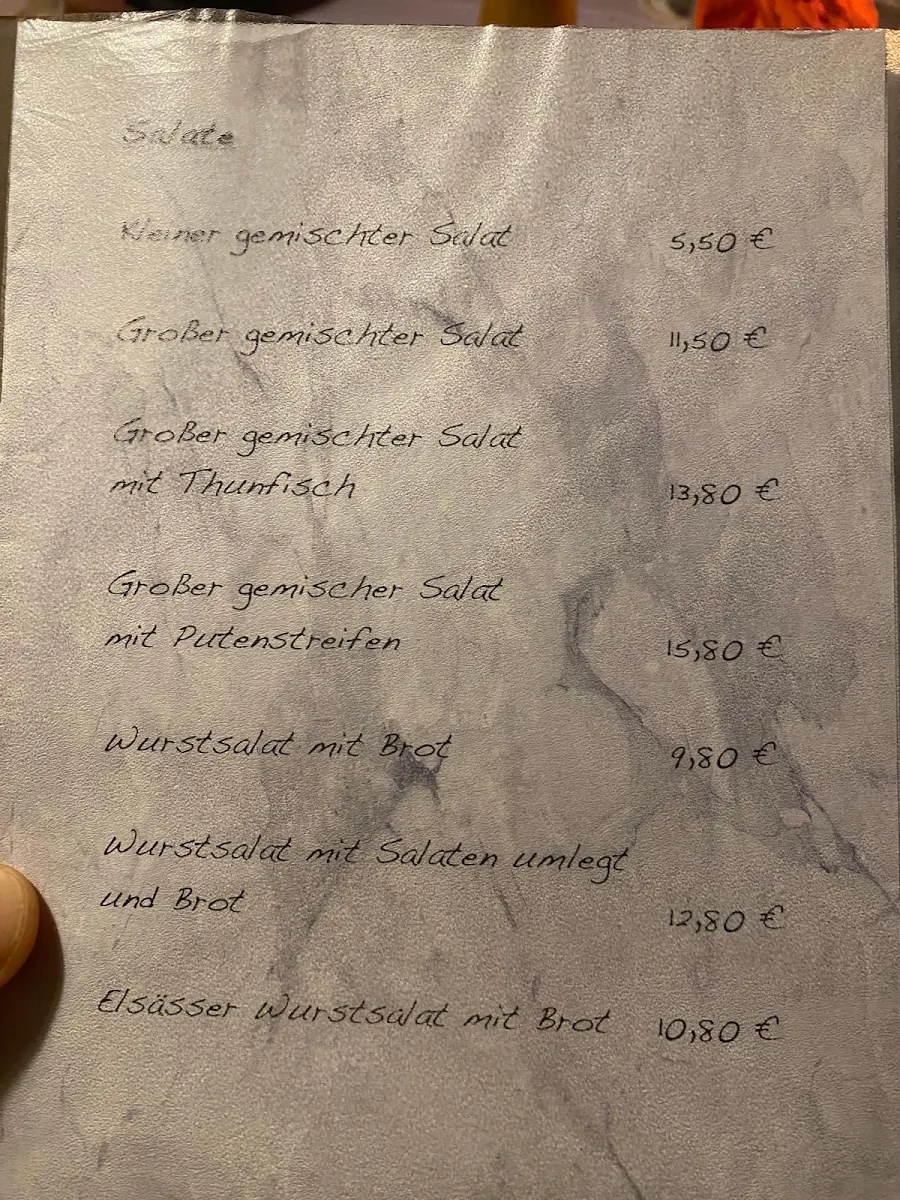 Salate
Kleiner gemischter Salat 5,50 €
Großer gemischter Salat 11,50 €
Großer gemischter Salat
mit Thunfisch 13,80 €
Großer gemischer Salat
mit Putenstreifen 15,80 €
Wurstsalat mit Brot 9,80 €
Wurstsalat mit Salaten umlegt
und Brot 12,80 €
Elsässer Wurstsalat mit Brot 10,80 €